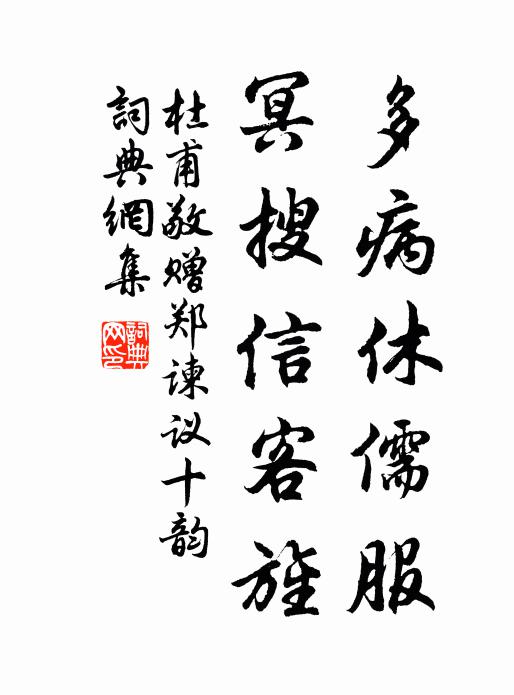 多病休儒服
冥搜信客旌
杜甫敬赠郑谏议十韵
詞典網集
詞典網印